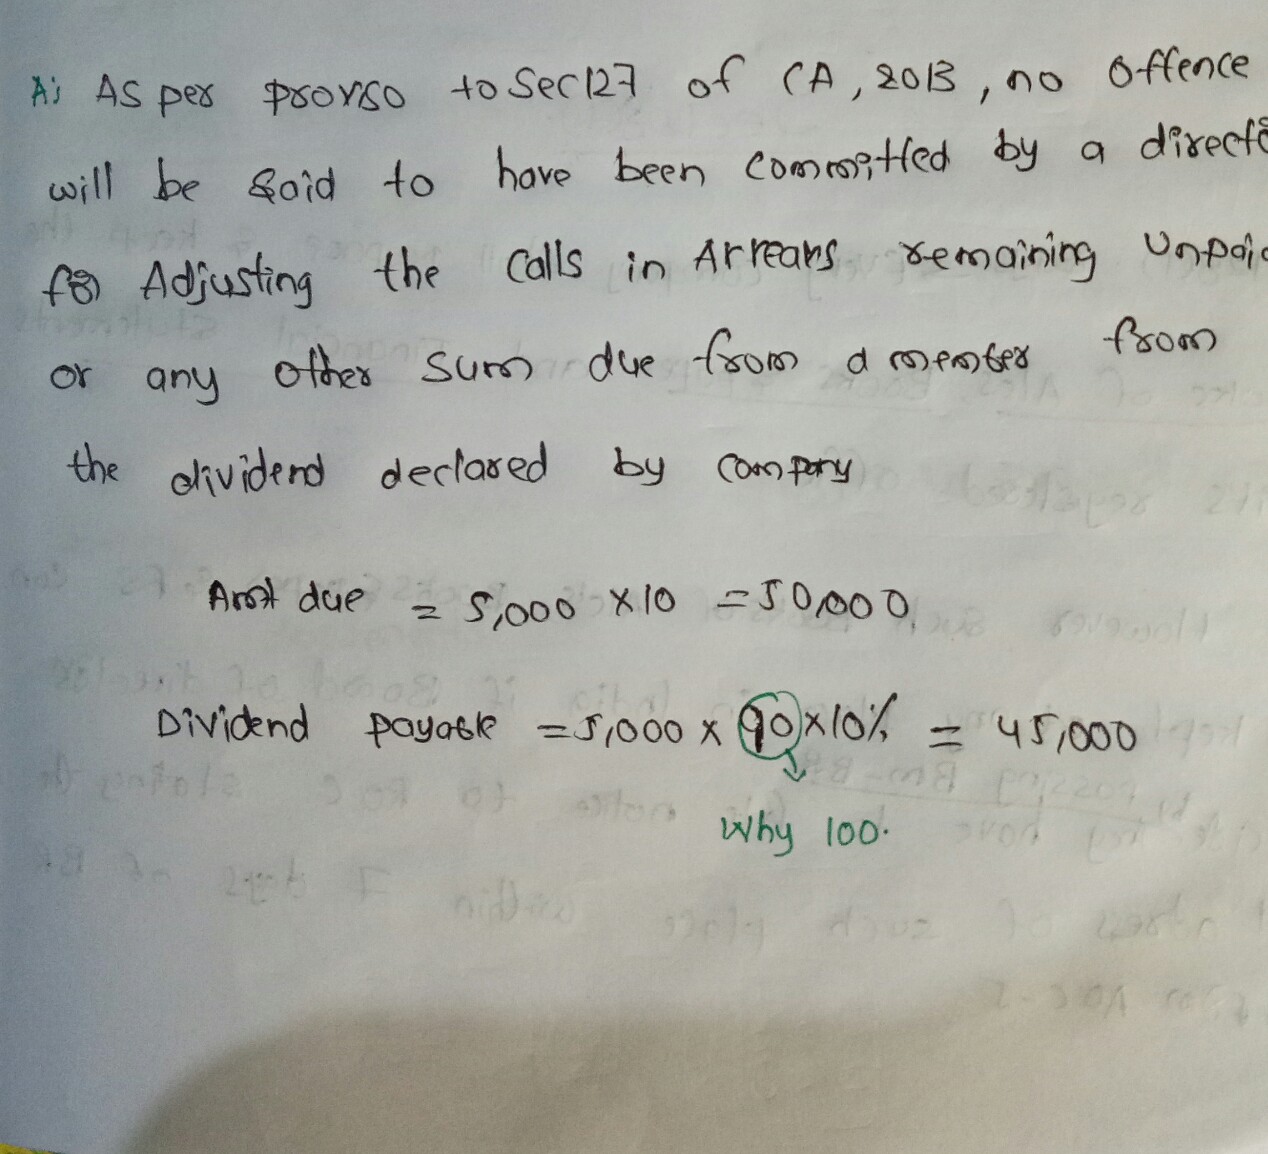 A; As per proviso to Sec 127 of CA, 2013, no offence
will be said to have been committed by a directo
for Adjusting the calls in Arrears remaining unpaid
or any other sum due from a member from
the dividend declared by company
Amt due = 5,000 × 10 = 50,000
Dividend payable = 5,000 × 90 × 10% = 45,000
Why 100.